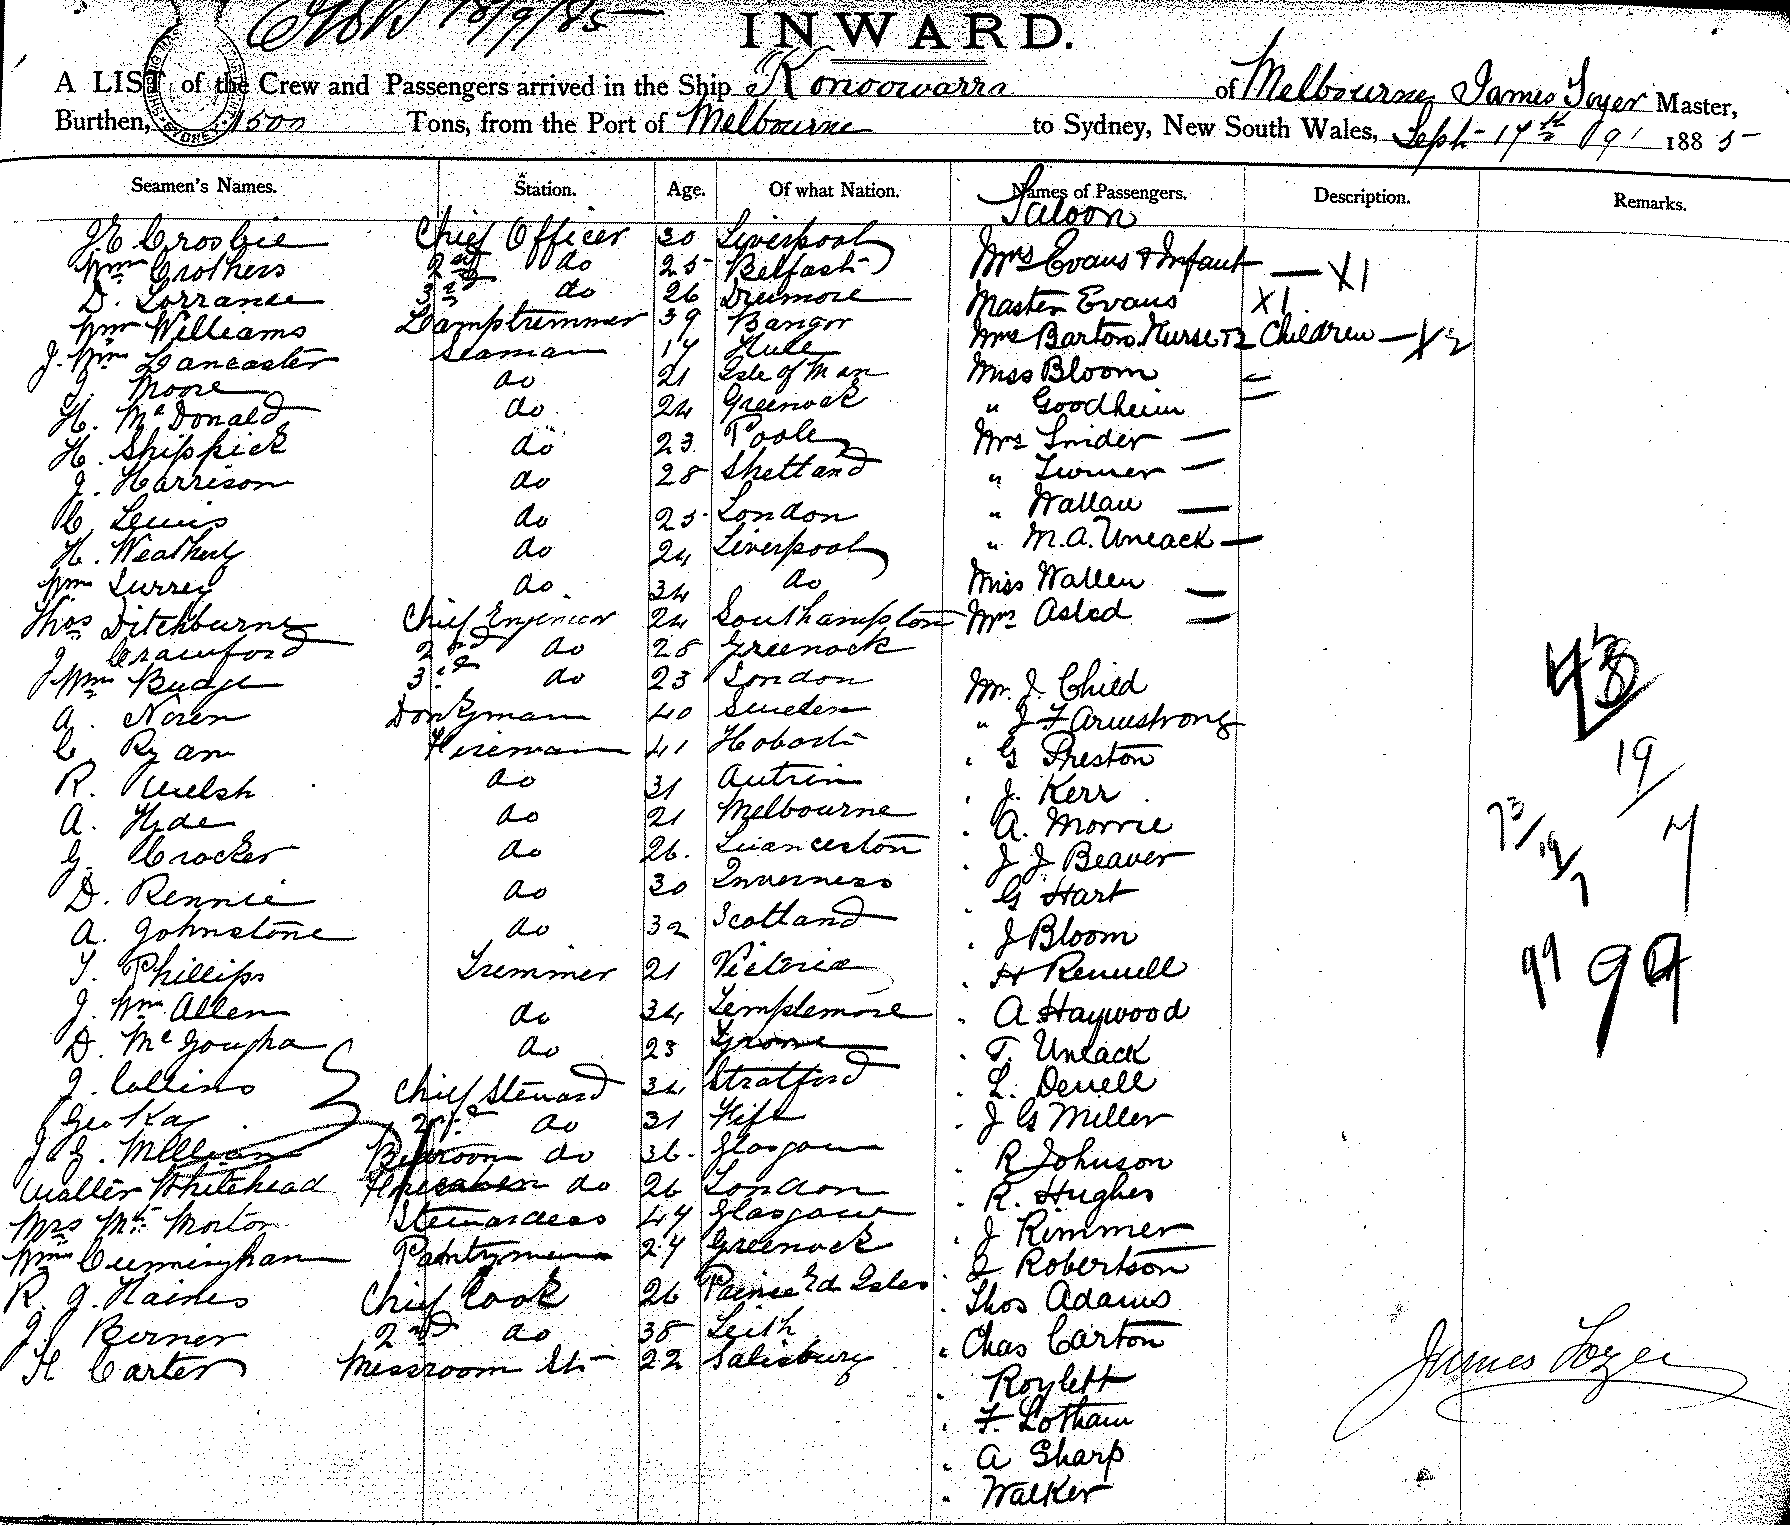 18/9/85
INWARD.
A LIST of the Crew and Passengers arrived in the Ship Konoowarra of Melbourne James Tozer Master,
Burthen, 1500 Tons, from the Port of Melbourne to Sydney, New South Wales, Sept 17th 1885
Seamen's Names. Station. Age. Of what Nation. Names of Passengers. Description. Remarks.
Saloon
J E Crosbie Chief Officer 30 Liverpool
Mrs Evans & Infant — X1
Wm Crothers 2nd do 25 Belfast
D. Torrance 3rd do 26 Dremore Master Evans X1
Wm Williams Lamptrimmer 39 Bangor Mrs Barton. Nurse & 2 Children — X2
J. Wm Lancaster Seaman 17 Hull
J. Moore do 21 Isle of Man Miss Bloom
H. McDonald do 24 Greenock " Goodheim
H. Shippick do 23 Poole Mrs Snider —
J. Harrison do 28 Shetland " Turner —
C. Lewis do 25 London " Wallau —
H. Weatherly do 24 Liverpool " M. A. Uneack —
Wm Surrey do 34 do Miss Wallen —
Thos Ditchburne Chief Engineer 24 Southampton Mrs Asled
J. Crawford 2nd do 28 Greenock
J Wm Budge 3rd do 23 London Mr. J. Child
A. Noren Donkyman 40 Sweden " J F Armstrong
C Ryan Fireman 41 Hobart " G Preston
R. Welsh do 31 Autrim " J. Kerr
A. Hyde do 21 Melbourne " A. Morrie
G. Crocker do 26. Luanceston " J J. Beaver
D. Rennie do 30 Inverness " G Hart
A. Johnstone do 32 Scotland " J Bloom
T. Phillips Trimmer 21 Victoria " H Rennell
J. Wm Allen do 34 Templemore " A Haywood
D. McGougha do 23 " T. Uneack
J. Collins Chief Steward 34 Stratford " L. Denell
Geo Kay 2nd do 31 Fife " J G Miller
J G. Millican Bedroom do 36. Glasgow " R Johnson
Walter Whitehead do 26 London " R. Hughes
Mrs Mt Morton Stewardess 47 Glasgow " J Rimmer
Wm Cunningham Pantryman 27 Greenock " J Robertson
R. J. Haines Chief Cook 26 Prince Ed Isles " Thos Adams
J. Berner 2nd do 38 Leith " Chas Carton
H Carter Messroom St 22 Salisbury
" Roylett
" F. Lotham
" A Sharp
" Walker
43
19
73
19
7
7
99 99
James Tozer